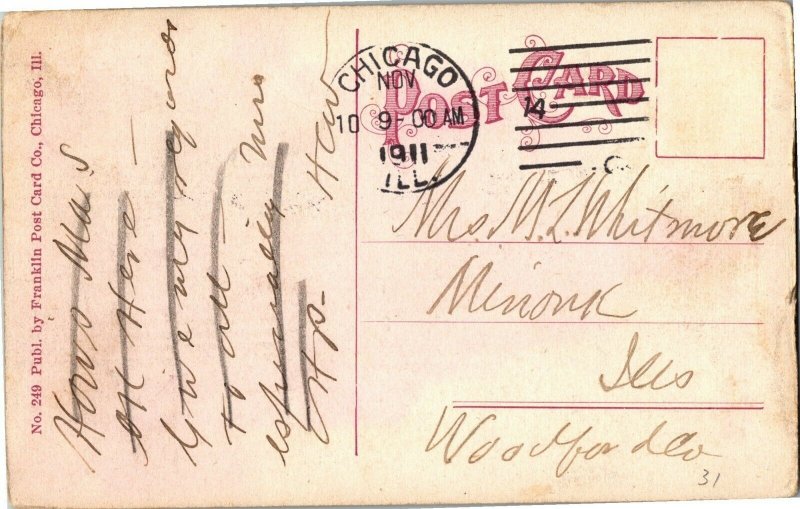 No. 249 Publ. by Franklin Post Card Co., Chicago, Ill.
Hows Ma's
OK Here -
Give my regards
to all - Mrs
especially
Hp -
POST CARD
CHICAGO
NOV
10 9-00 AM
1911
ILL.
14
C
Mrs. M. L. Whitmore
Minonk
Ills
Woodford Co
31